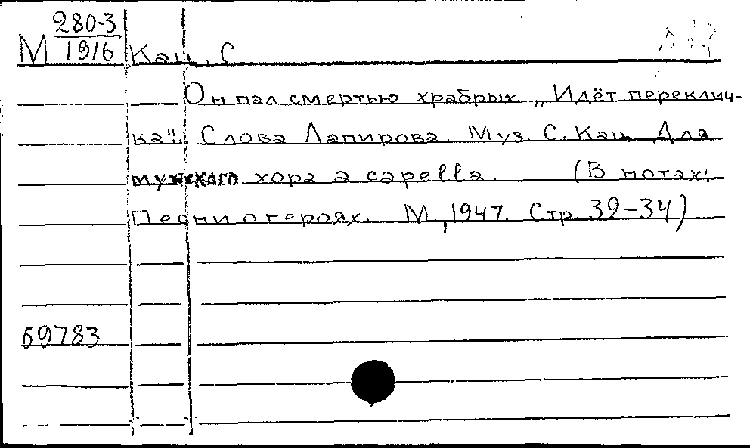 М 280-3
1916 Кац, С
Он пал смертью храбрых „Идёт переклич-
ка". Слова Лапирова. Муз. С. Кац. Для
мужского хора a capella. (В нотах:
Песни о героях. М, 1947. Стр 32-34)
69783